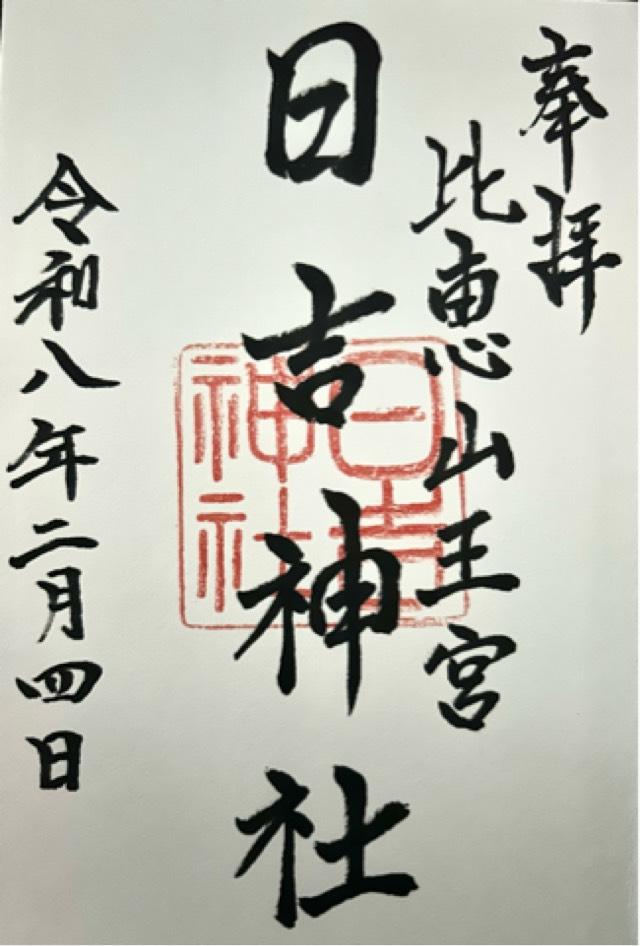 奉拝
比恵山王宮
日吉神社
日吉
神社
令和八年二月四日